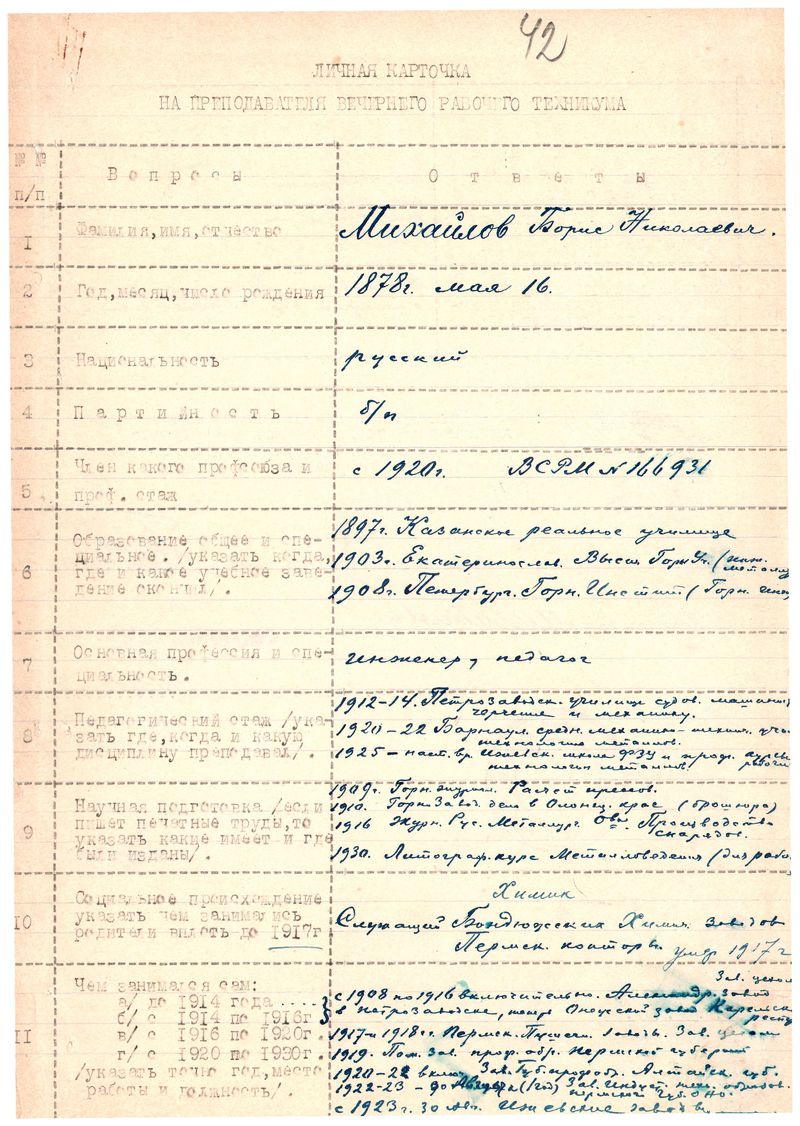 42
ЛИЧНАЯ КАРТОЧКА
НА ПРЕПОДАВАТЕЛЯ ВЕЧЕРНЕГО РАБОЧЕГО ТЕХНИКУМА
№ №
п/п
Вопросы
Ответы
1
Фамилия, имя, отчество
Михайлов Борис Николаевич.
2
Год, месяц, число рождения
1878г. мая 16.
3
Национальность
русский
4
Партийность
б/п
5
Член какого профсоюза и
проф. стаж
с 1920г. ВСРМ № 166931
6
Образование общее и спе-
циальное. /указать когда,
где и какое учебное заве-
дение окончил/.
1897г. Казанское реальное училище
1903г. Екатеринослав. Высш. Горн. Уч. (инж.
металлу
1908г. Петербург. Горн. Инстит (Горн. инж
7
Основная профессия и спе-
циальность.
инженер, педагог
8
Педагогический стаж /ука-
зать где, когда и какую
дисциплину преподавал/.
1912-14. Петрозаводск. училище судов. машинис
черчение и механику.
1920-22 Барнаул. средн. механико-технич. учи
технология металлов.
1925 - наст. вр. Ижевск. школа ФЗУ и проф. курсы
технология металлов. рабочих
9
Научная подготовка /если
пишет печатные труды, то
указать какие имеет и где
были изданы/.
1909г. Горн. журнал. Расчет прессов.
1910. Горн. Завод. дело в Олонец. крае (брошюра)
1916 Журн. Рус. Металлург. Об-ва. Производство
снарядов.
1930. Литограф. курс Металловедения (для рабо
10
Социальное происхождение
указать чем занимались
родители вплоть до 1917г.
Химик
Служащий Бондюжских Химич. заводов
Пермск. конторы. умер 1917 г
11
Чем занимался сам:
а/ до 1914 года ....
б/ с 1914 по 1916г
в/ с 1916 по 1920г.
г/ с 1920 по 1930г.
/указать точно год, место
работы и должность/.
Зав. цехом
с 1908 по 1916 включительно. Александр. завод
в Петрозаводске, теперь Онежский завод Карельск
респу
1917 и 1918гг. Пермск. Пушечн. завод. Зав. цехами
1919. Пом. Зав. проф. обр. Пермской губернии
1920-22 включ. Зав. Губпрофобр. Алтайск. губ.
1922-23 - до Августа (1 год) Зав. Индуст. техн. образов.
Пермской Губ. ОНО.
с 1923г. 30 Авг. Ижевские заводы